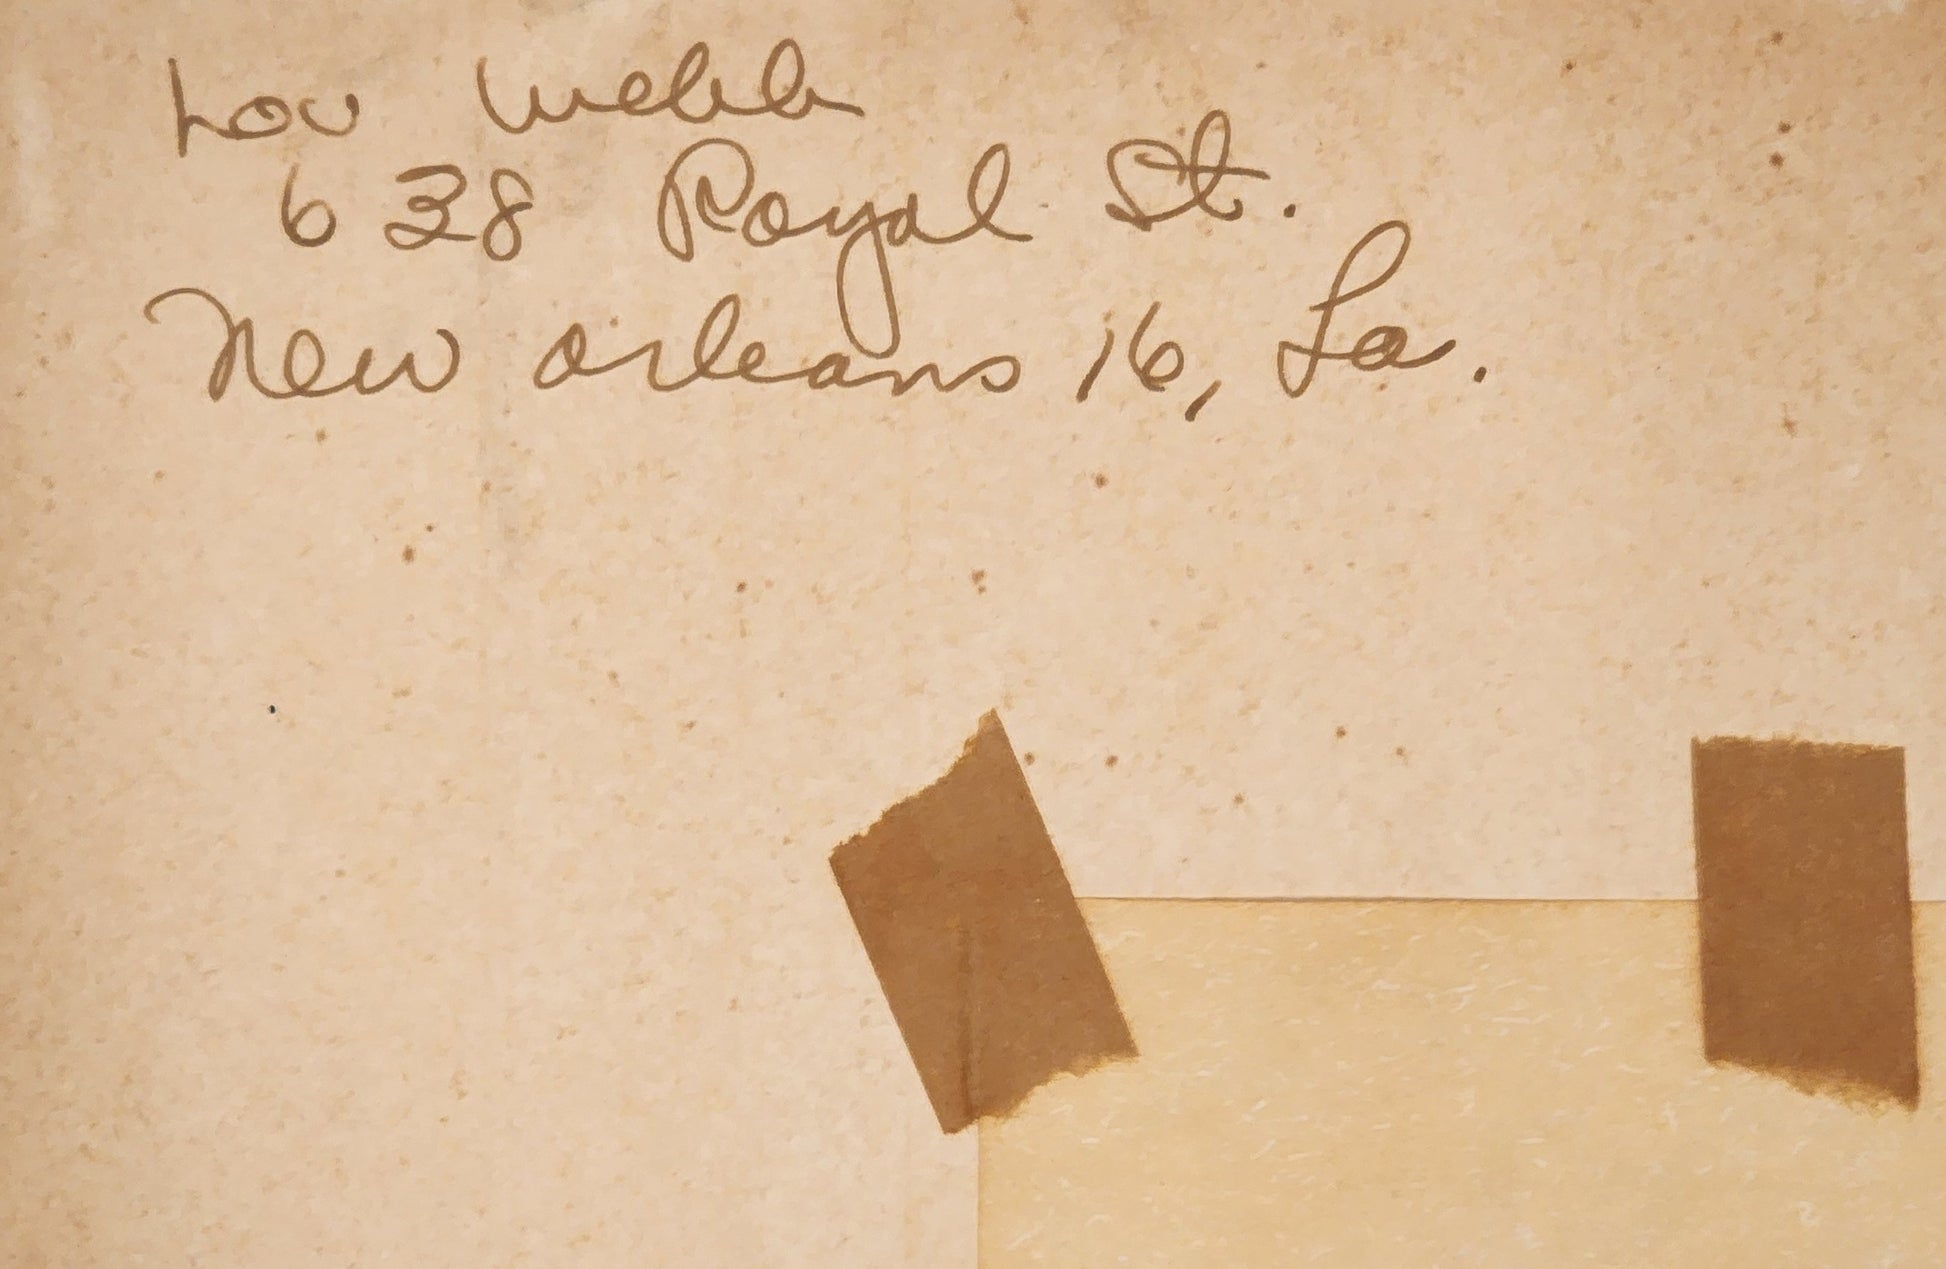 Lou Webb
638 Royal St.
New Orleans 16, La.